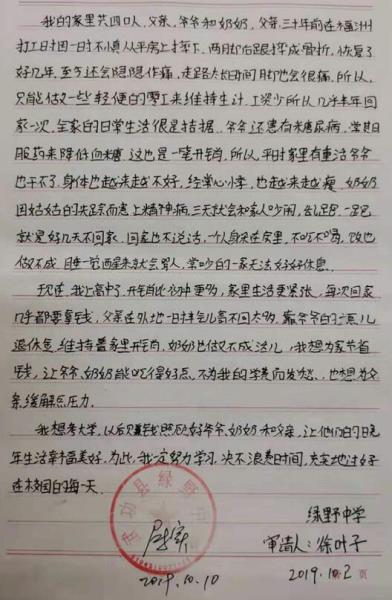 我的家里共四口人,父亲,爷爷和奶奶,父亲三十年前在福州
打工时因一时不慎从平房上摔下,两月却后跟摔成骨折,恢复了
好几年,至今还会隐隐作痛,走路太长时间月却也会很痛,所以,
只能做一些轻便的零工来维持生计,工资少所以几乎半年回
家一次,全家的日常生活很是拮据。爷爷还患有糖尿病,常期
服药来降低血糖,这也是一笔开销,所以,平时家里有重活爷爷
也干不了,身体也越来越不好,经常心悸,也越来越瘦,奶奶
因姑姑的失踪而患上精神病,三天就会和家人吵闹,乱跑,一跑
就是好几天不回家,回家也不说话,一个人呆在房里,不吃不喝,饭也
做不成,睡一觉醒来就会骂人,常吵的一家无法好好休息。
现在,我上高中了,开销比初中更多,家里生活更紧张,每次回家
几乎都要拿钱,父亲在外地一日挣的不太多,靠爷爷的一点儿
退休息,维持着家里开销,奶奶也做不成活儿,我想为家节省
钱,让爷爷、奶奶能吃得好点,不为我的学费而发愁,也想为父
亲缓解点压力。
我想考大学,以后赚钱照顾好爷爷、奶奶和父亲,让他们的晚
年生活幸福美好,为此,我一定努力学习,决不浪费时间,充实地过好
在校园的每一天。
绿野中学
武功县绿野中学
属实
申请人:徐叶子
2019.10.10
2019.10.2
页